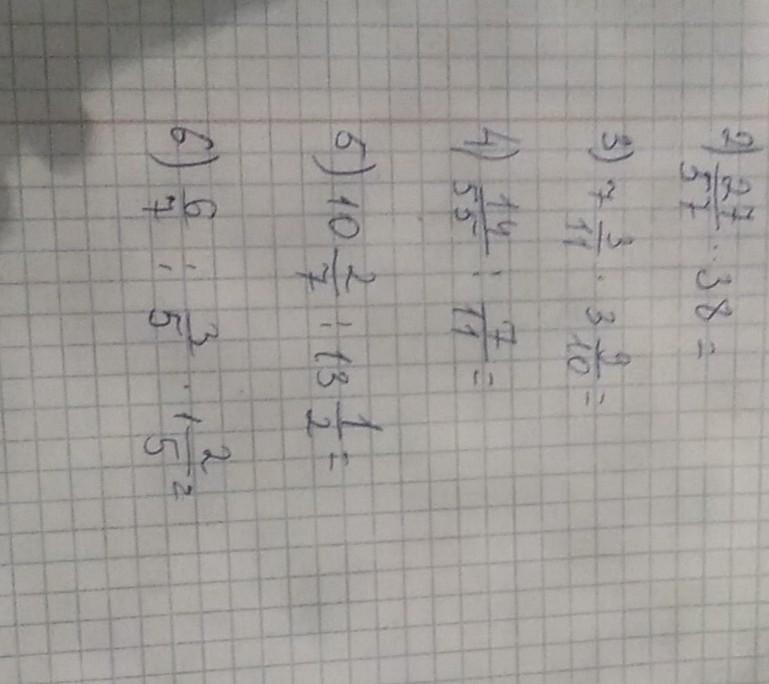 2) 27/57 · 38 =
3) 7 3/11 · 3 9/10 =
4) 14/55 : 7/11 =
5) 10 2/7 : 13 1/2 =
6) 6/7 : 3/5 · 1 2/5 =